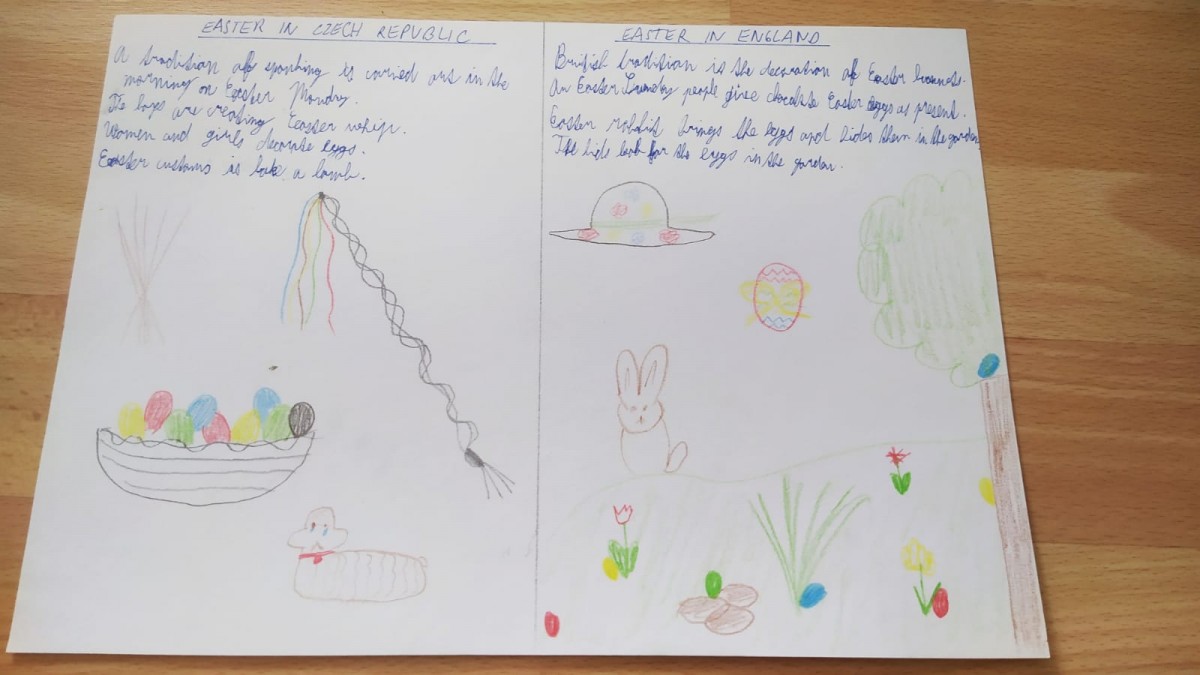 EASTER IN CZECH REPUBLIC
A tradition of spanking is carried out in the
morning on Easter Monday.
The boys are creating Easter whip.
Women and girls decorate eggs.
Easter customs is bake a lamb.
EASTER IN ENGLAND
British tradition is the decoration of Easter bonnets.
An Easter Sunday people give chocolate Easter eggs as present.
Easter rabbit brings the eggs and hides them in the garden
The kids look for the eggs in the garden.